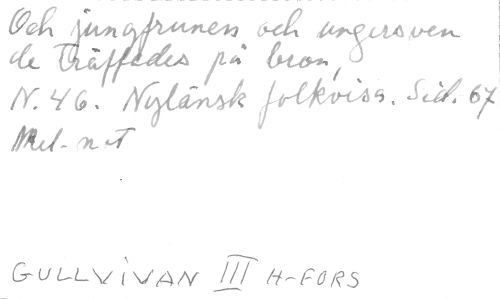 Och jungfrunen och ungersven
de träffades på bron,
N. 46. Nylänsk folkvisa. Sid. 67
Mel. not
GULLVIVAN III H-FORS